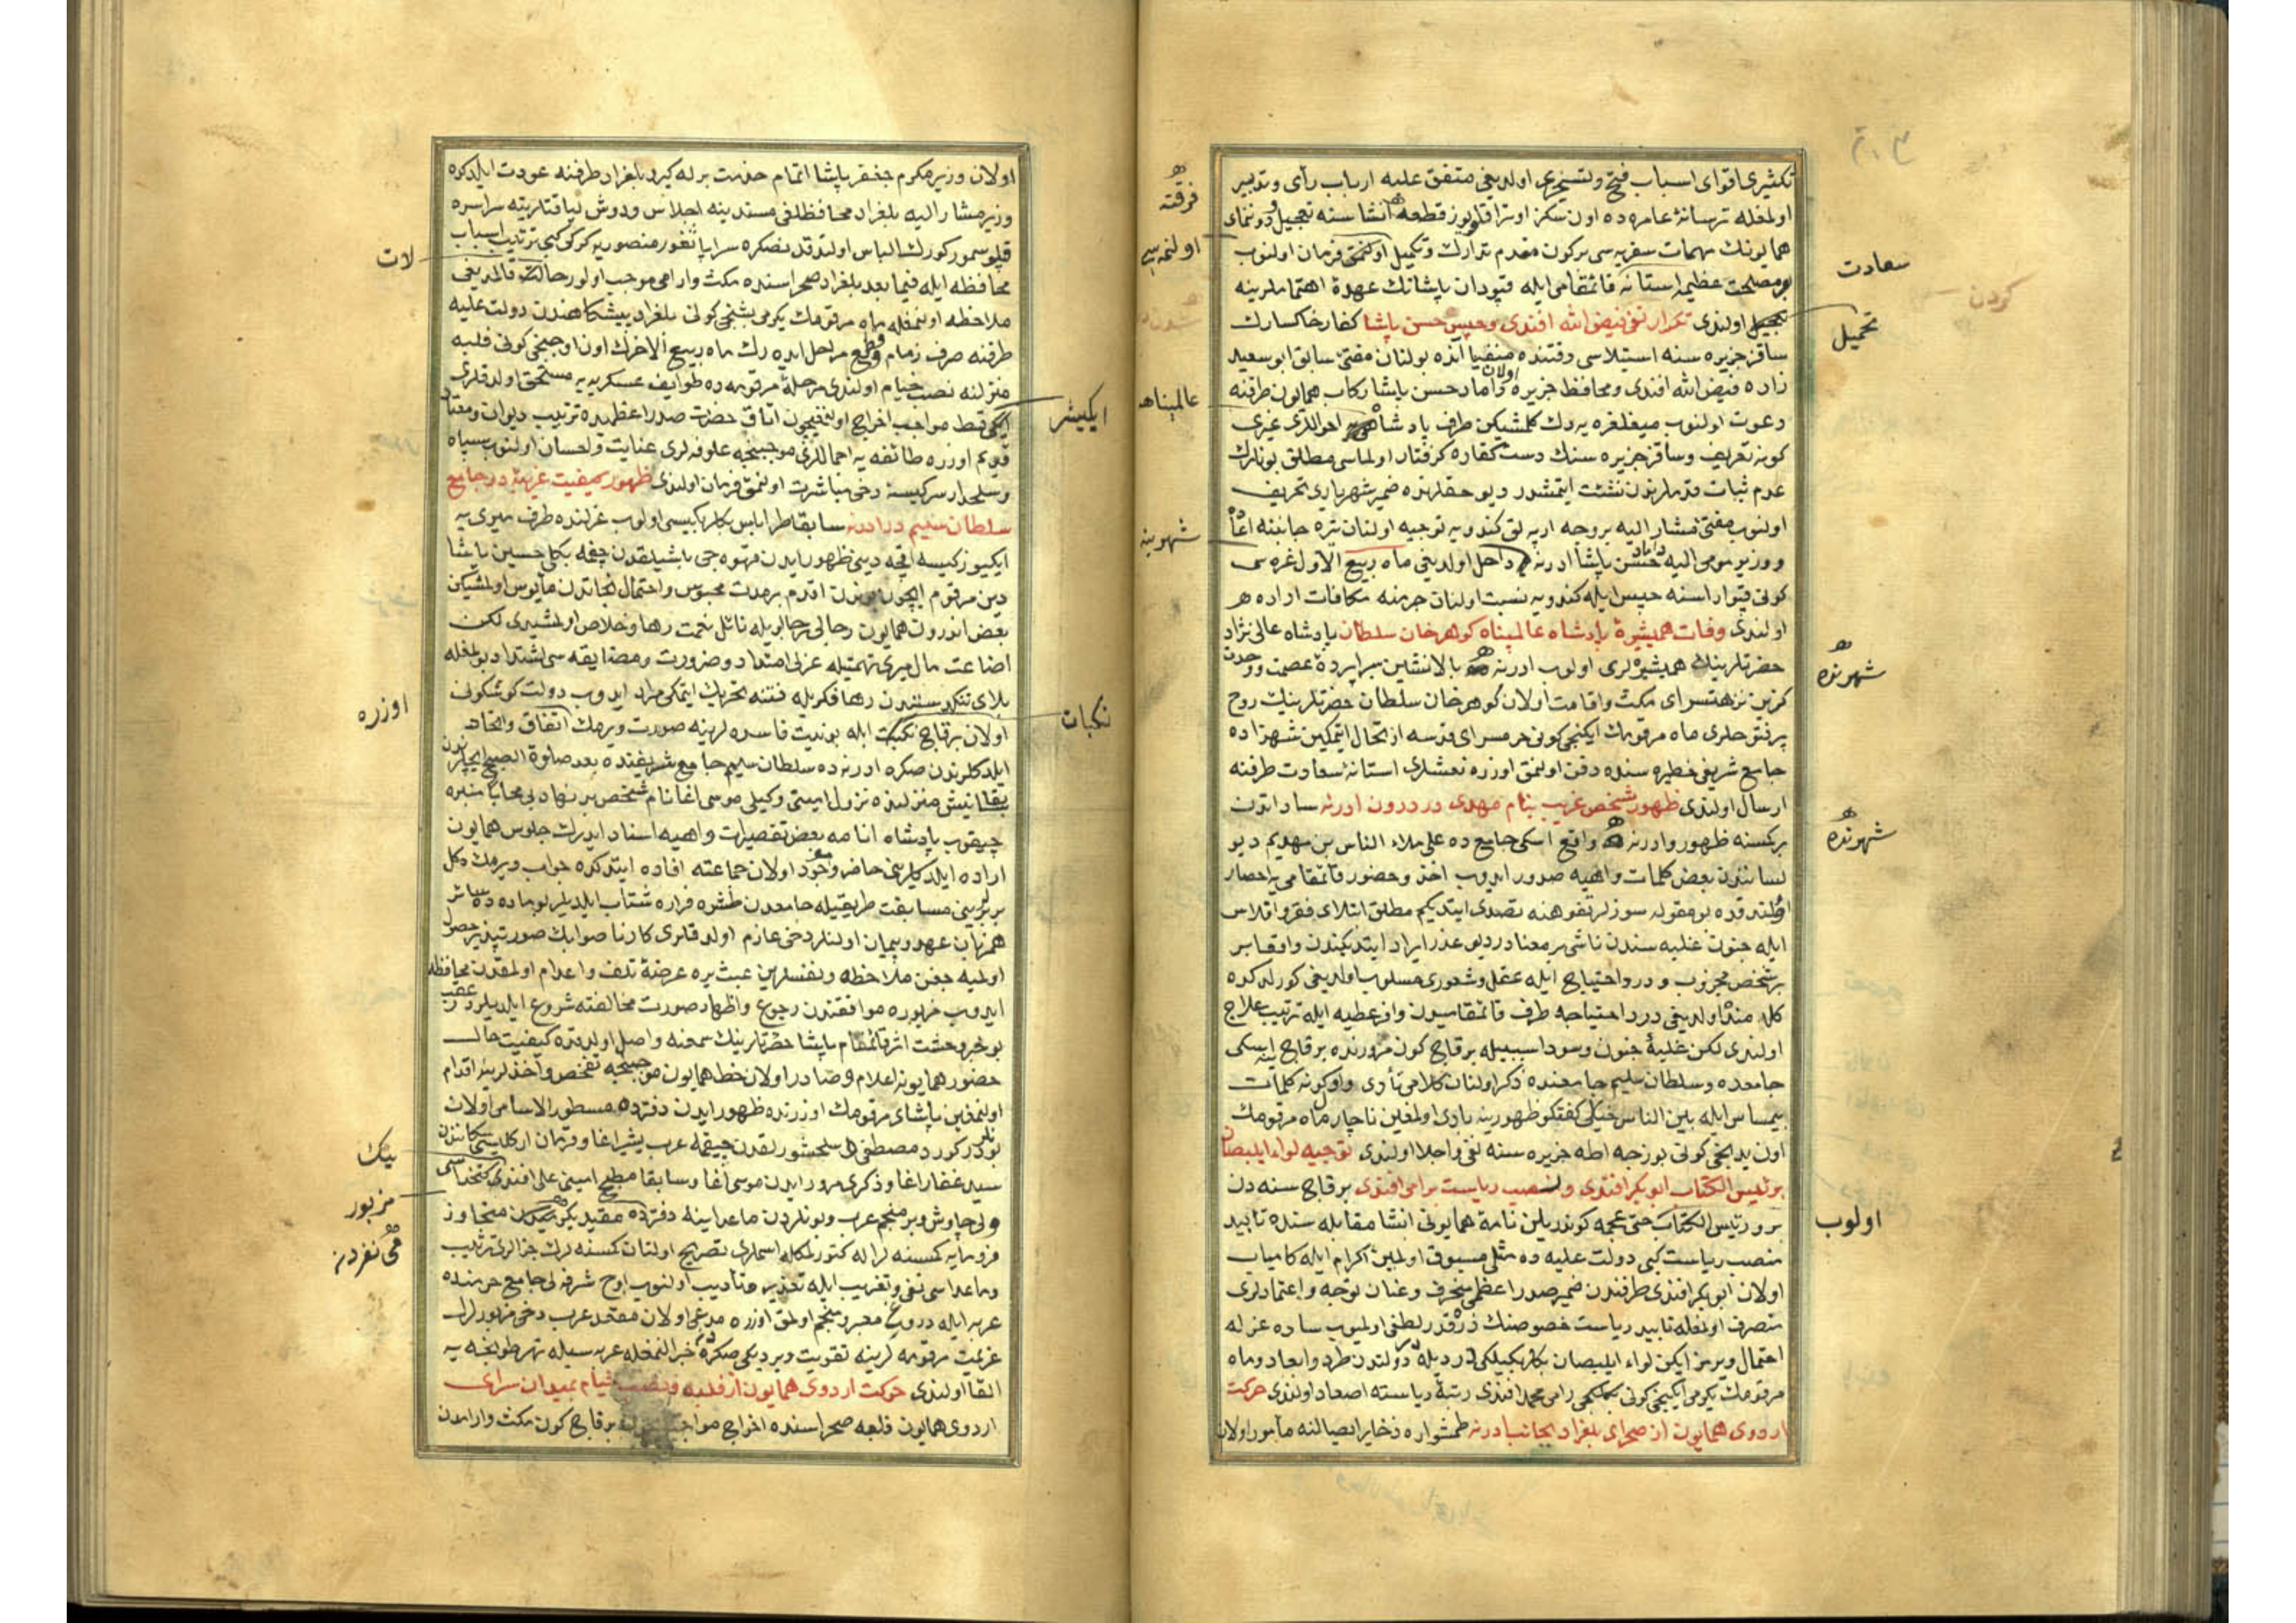 تكثيرى اقواى اسباب فتح وتسخيرى اولديغى متفق عليه ارباب رأى وتدبير
اولمغله ترسانۀ عامره ده اون سكز اوتراقلو يوز قطعه انشا سنه تعجيل ودوننماى
همايونك مهمات سفريه سى بركون مقدم تدارك وتكميل اولنمق فرمان اولنوب
بو مصلحت عظيمه استانه قائمقامى ايله قپودان پاشانك عهدۀ اهتماملرينه
تحميل اولندى تكرار نفى فيض الله افندى وحبس حسن پاشا كفار خاكسارك
ساقز جزيره سنه استيلاسى وقتنده منفيا آنده بولنان مفتئ سابق ابو سعيد
زاده فيض الله افندى ومحافظ جزيره اولان داماد حسن پاشا ركاب همايون طرفنه
دعوت اولنوب ميغلغره يه دك كلمشيكن طرف پادشاهى احواللرى غيرى
كونه تعريف وساقز جزيره سنك دست كفاره كرفتار اولماسى مطلق بونلرك
عدم ثبات قدملرندن نشئت ايتمشدر ديو حقلرنده ضمير شهريارى تحريف
اولنوب مفتئ مشار اليه بروجه ارپه لق كندويه توجيه اولنان تيره جانبنه اعاده
ووزير مومى اليه داماد حسن پاشا ادرنه داخل اولديغى ماه ربيع الاول غره سى
كونى قپو اراسنه حبس ايله كندويه نسبت اولنان جرمنه مكافات اراده
اولندى وفات همشيرۀ پادشاه عالمپناه كوهرخان سلطان پادشاه عالى نژاد
حضرتلرينك همشيره لرى اولوب ادرنه بالانشين سراپردۀ عصمت ووحدت
كزين نزهتسراى مكث واقامت اولان كوهرخان سلطان حضرتلرينك روح
پرفتوحلرى ماه مرقومك ايكنجى كونى حرمسراى قدسه ارتحال ايتمكين شهزاده
جامع شريفى حظيره سنده دفن اولنمق اوزره نعشلرى استانۀ سعادت طرفنه
ارسال اولندى ظهور شخص غريب بنام مهدى در درون ادرنه ساداتدن
بركسنه ظهور وادرنه واقع اسكى جامع ده على ملاء الناس بن مهديم ديو
لسانندن بعض كلمات واهيه صدور ايدوب اخذ وحضور قائمقامى يه احضار
اولندقده بو مقوله سوزلر تفوهنه تصدى ايتديكم مطلق ابتلاى فقر وافلاس
ايله جنون غلبه سندن ناشى بر معنادر ديو عذر ايراد ايتديكندن واقعا بر
بر شخص مجذوب ودرد احتياج ايله عقل وشعورى مسلوب اولديغى كورلدكده
اولديغى درد احتياجه طرف قائمقاميدن وافر عطيه ايله ترتيب علاج
اولندى لكن غلبۀ جنون وسودا سببيله برقاج كون مرورنده برقاج ينه اسكى
جامعده وسلطان سليم جامعنده ذكر اولنان كلامى تأدى واو كونه كلمات
بيمساس ايله بين الناس خيلى كفتكو ظهورينه بادى اولمغين ناچار ماه مرقومك
اون يدنجى كونى بوزجه اطه جزيره سنه نفى واجلا اولندى توجيه لواء ايلبصان
برئيس الكتاب ابو بكر افندى ونصب رياست برامى افندى برقاج سنه دن
برو رئيس الكتاب حتى عجمه كوندريلن نامۀ همايونى انشا مقابله سنده تأبيد
منصب رياست كبى دولت عليه ده مثلى مسبوق اولمين اكرام ايله كامياب
اولان ابو بكر افندى طرفندن ضمير صدر اعظمى منحرف وعنان توجه واعتمادلرى
منصرف اولمغله تأبيد رياست خصوصنك ذره قدر لطفى اولميوب ساده عزله
احتمال ويرمز ايكن لواء ايلبصان بكلربكيلكى ايله در دولتدن طرد وابعاد وماه
مرقومك يكرمى ايكنجى كونى بكلكجى رامى محمد افندى رتبۀ رياسته اصعاد اولندى حركت
اردوى همايون از صحراى بلغراد بجانب ادرنه طمشواره ذخاير ايصالنه مأمور اولان
فرقته
اولنمه سى
عالمپناه
شهرينه
سعادت
كردن
تحميل
شهرنده
شهرنده
اولوب
اولان وزير مكرم جعفر پاشا اتمام خدمت برله كيرو بلغراد طرفنه عودت ايلدكده
وزير مشار اليه بلغراد محافظلغى مسندينه اجلاس ودوش لياقتلرينه سراسره
قپلو سمور كورك الباس اولندقدنصكره سراپا ثغور منصوريه كرك كبى ترتيب اسباب
محافظه ايله فيما بعد بلغراد صحراسنده مكث وارامى موجب اولور حالت قالمديغى
ملاحظه اولنمغله ماه مرقومك يكرمى بشنجى كونى بلغراد پيشكاهندن دولت عليه
طرفنه صرف زمام وقطع مراحل ايده رك ماه ربيع الاخرك اون اوچنجى كونى فلبه
منزلنه نصب خيام اولندى مرحلۀ مرقومه ده طوايف عسكريه يه مستحق اولدقلرى
ايكى قسط مواجب اخراج اولنمغيچون اتاق حضرت صدر اعظميده ترتيب ديوان ومعتاد
قديم اوزره طائفه يه احماللرى موجبنجه علوفه لرى عنايت واحسان اولنوب سپاه
وسلحدار سركيسنه دخى مباشرت اولنمق فرمان اولندى ظهور كيفيت غريبه در جامع
سلطان سليم در ادرنه سابقا طرابلس بكلربكيسى اولوب عزلنده طرف ميرى يه
ايكيوز كيسه اقچه دينى ظهور ايدن قهوه جى باشيلقدن چقمه بكلى حسين پاشا
دين مرقوم ايچون بوندن اقدم برمدت محبوس واحتمال نجاتدن مأيوس اولمشيكن
بعض اندرون همايون رجالى رجالريله نائل نعمت رها وخلاص اولمشيدى لكن
اضاعت مال ميرى تهمتيله عزلى امتداد وضرورت ومضايقه سى اشتداد بولمغله
بلاى تنكدستيدن رها فكريله فتنه تحريك ايتمكى مراد ايدوب دولت كوشكونى
اولان برقاج نكبت ايله بو نيت فاسده لرينه صورت ويرمك اتفاق واتحاد
ايلدكلرندن صكره ادرنه ده سلطان سليم جامع شريفنده بعد صلوة الصبح ايچلرندن
نزول امينى وكيلى موسى اغا نام شخص بدنهاد بى محابا منبره
چيقوب پادشاه انامه بعض تقصيرات واهيه اسناد ايدرك جلوس همايون
اراده ايلدكلرينى حاضر وموجود اولان جماعته افاده ايتدكده جواب ويرمك دكل
بربرينى مسابقت طريقيله جامعدن طشره فراره شتاب ايلديلر بو ماده ده
همزبان عهد وپيمان اولنلر دخى عازم اولدقلرى كار ناصوابك صورتپذير حصول
اولميه جغن ملاحظه ونفسلرين عبث يره عرضۀ تلف واعدام اولمقدن محافظه
ايدوب مزبوره موافقتدن رجوع واظهار صورت مخالفته شروع ايلديلر در عقب
بو خبر وحشت اثر قائمقام پاشا حضرتلرينك سمعنه واصل اولدقده كيفيت حال
حضور همايونه اعلام وصادر اولان خط همايون موجبنجه تفحص واخذلرينه اقدام
اولنمغين پاشاى مرقومك اوزرنده ظهور ايدن دفترده مسطور الاسامى اولان
كورد مصطفى سلحشورلقدن چيقمه عرب بشير اغا وقرمان اركلسى سكانندن
سيد غفار اغا وذكرى مرور ايدن موسى اغا وسابقا مطبخ امينى على افندى كتخداسى
ولى چاوش وبر منجم عرب وبونلردن ماعدا ينه دفترده مقيد متجاوز
فرومايه كسنه لر
وماعداسى نفى وتغريب ايله تعذير وتأديب اولنوب اوچ شرفه لى جامع حرمنده
عربه ايله دروغ معبر ومنجم اولمق اوزره مدعى اولان مقعد عرب دخى مزبورلرك
عزيمت مرقومه لرينه تقويت ويرديكى صكره خبر النمغله عربه سيله نهر طونجه يه
القا اولندى حركت اردوى همايون از فلبه ونصب خيام بميدان سراى
اردوى همايون فلبه صحراسنده اخراج مواجب ايچون برقاج كون مكث وارامدن
لات
اوزره
بيك
مزبور
نفردنه
نكبات
ايكيشر